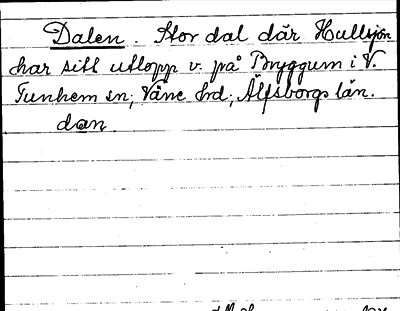 Dalen. Stor dal där Hullsjön
har sitt utlopp v. på Bryggum i V.
Tunhem sn; Väne hrd; Älfsborgs län.
dan.